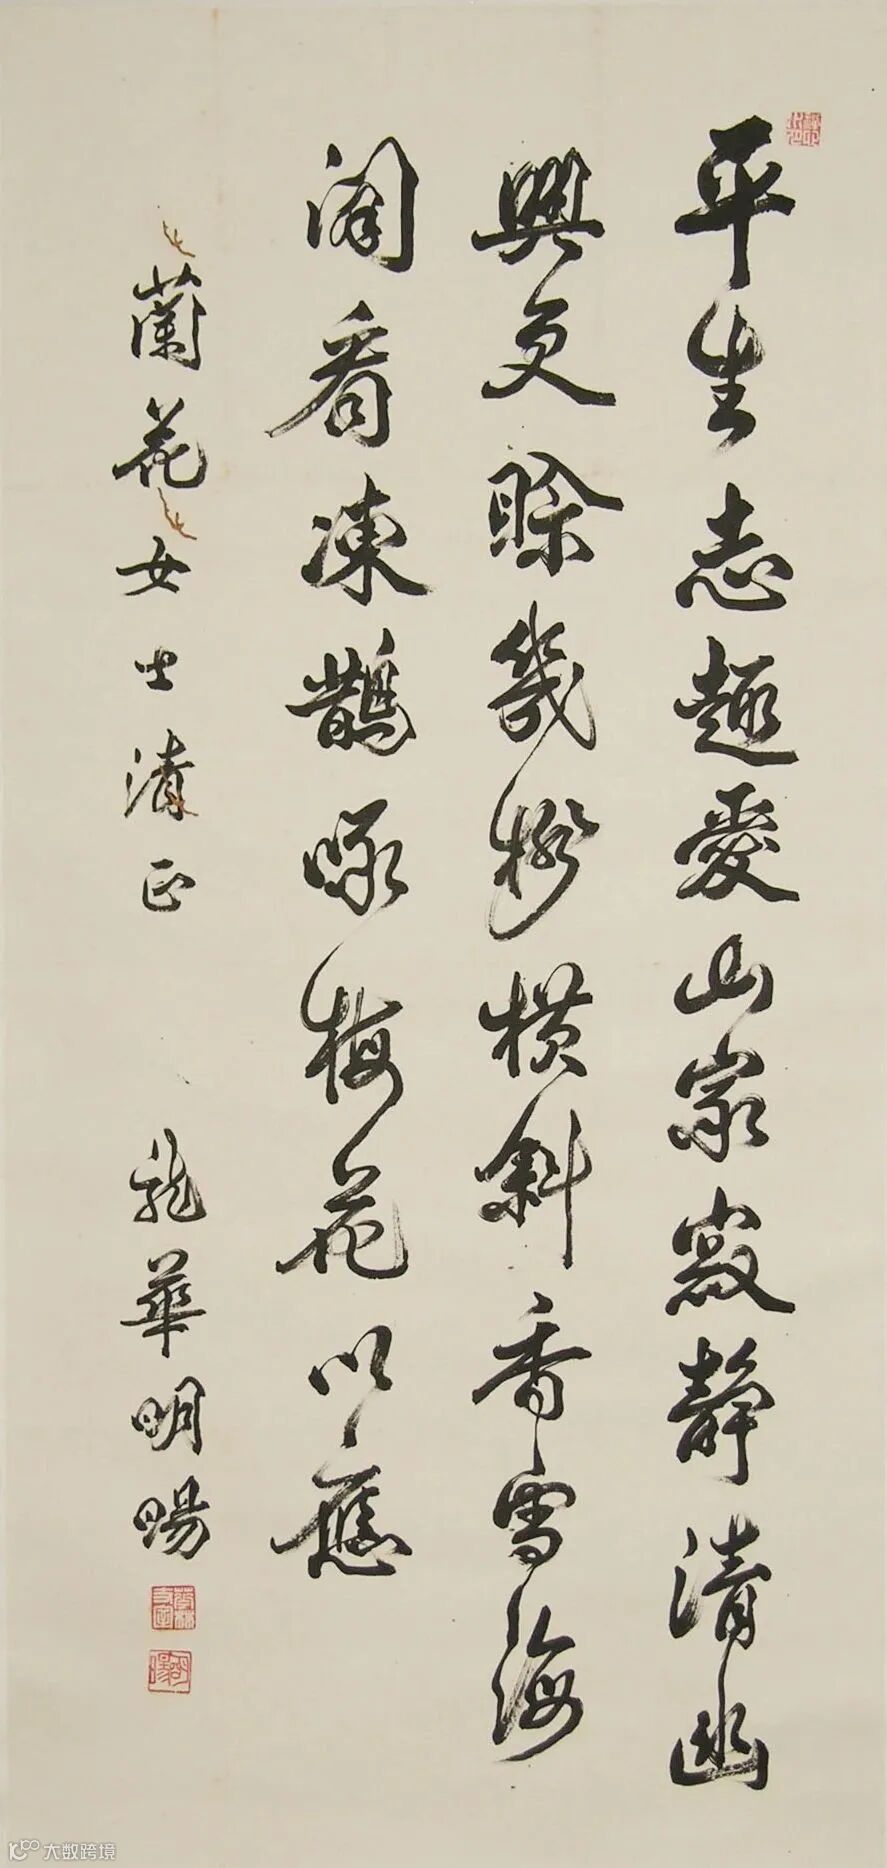 平生志趣愛山家寂静清幽
興更賒幾椏横斜香雪海
閑看凍鵲啄梅花以應
蘭花女士清正
龍華明暘
大数跨境